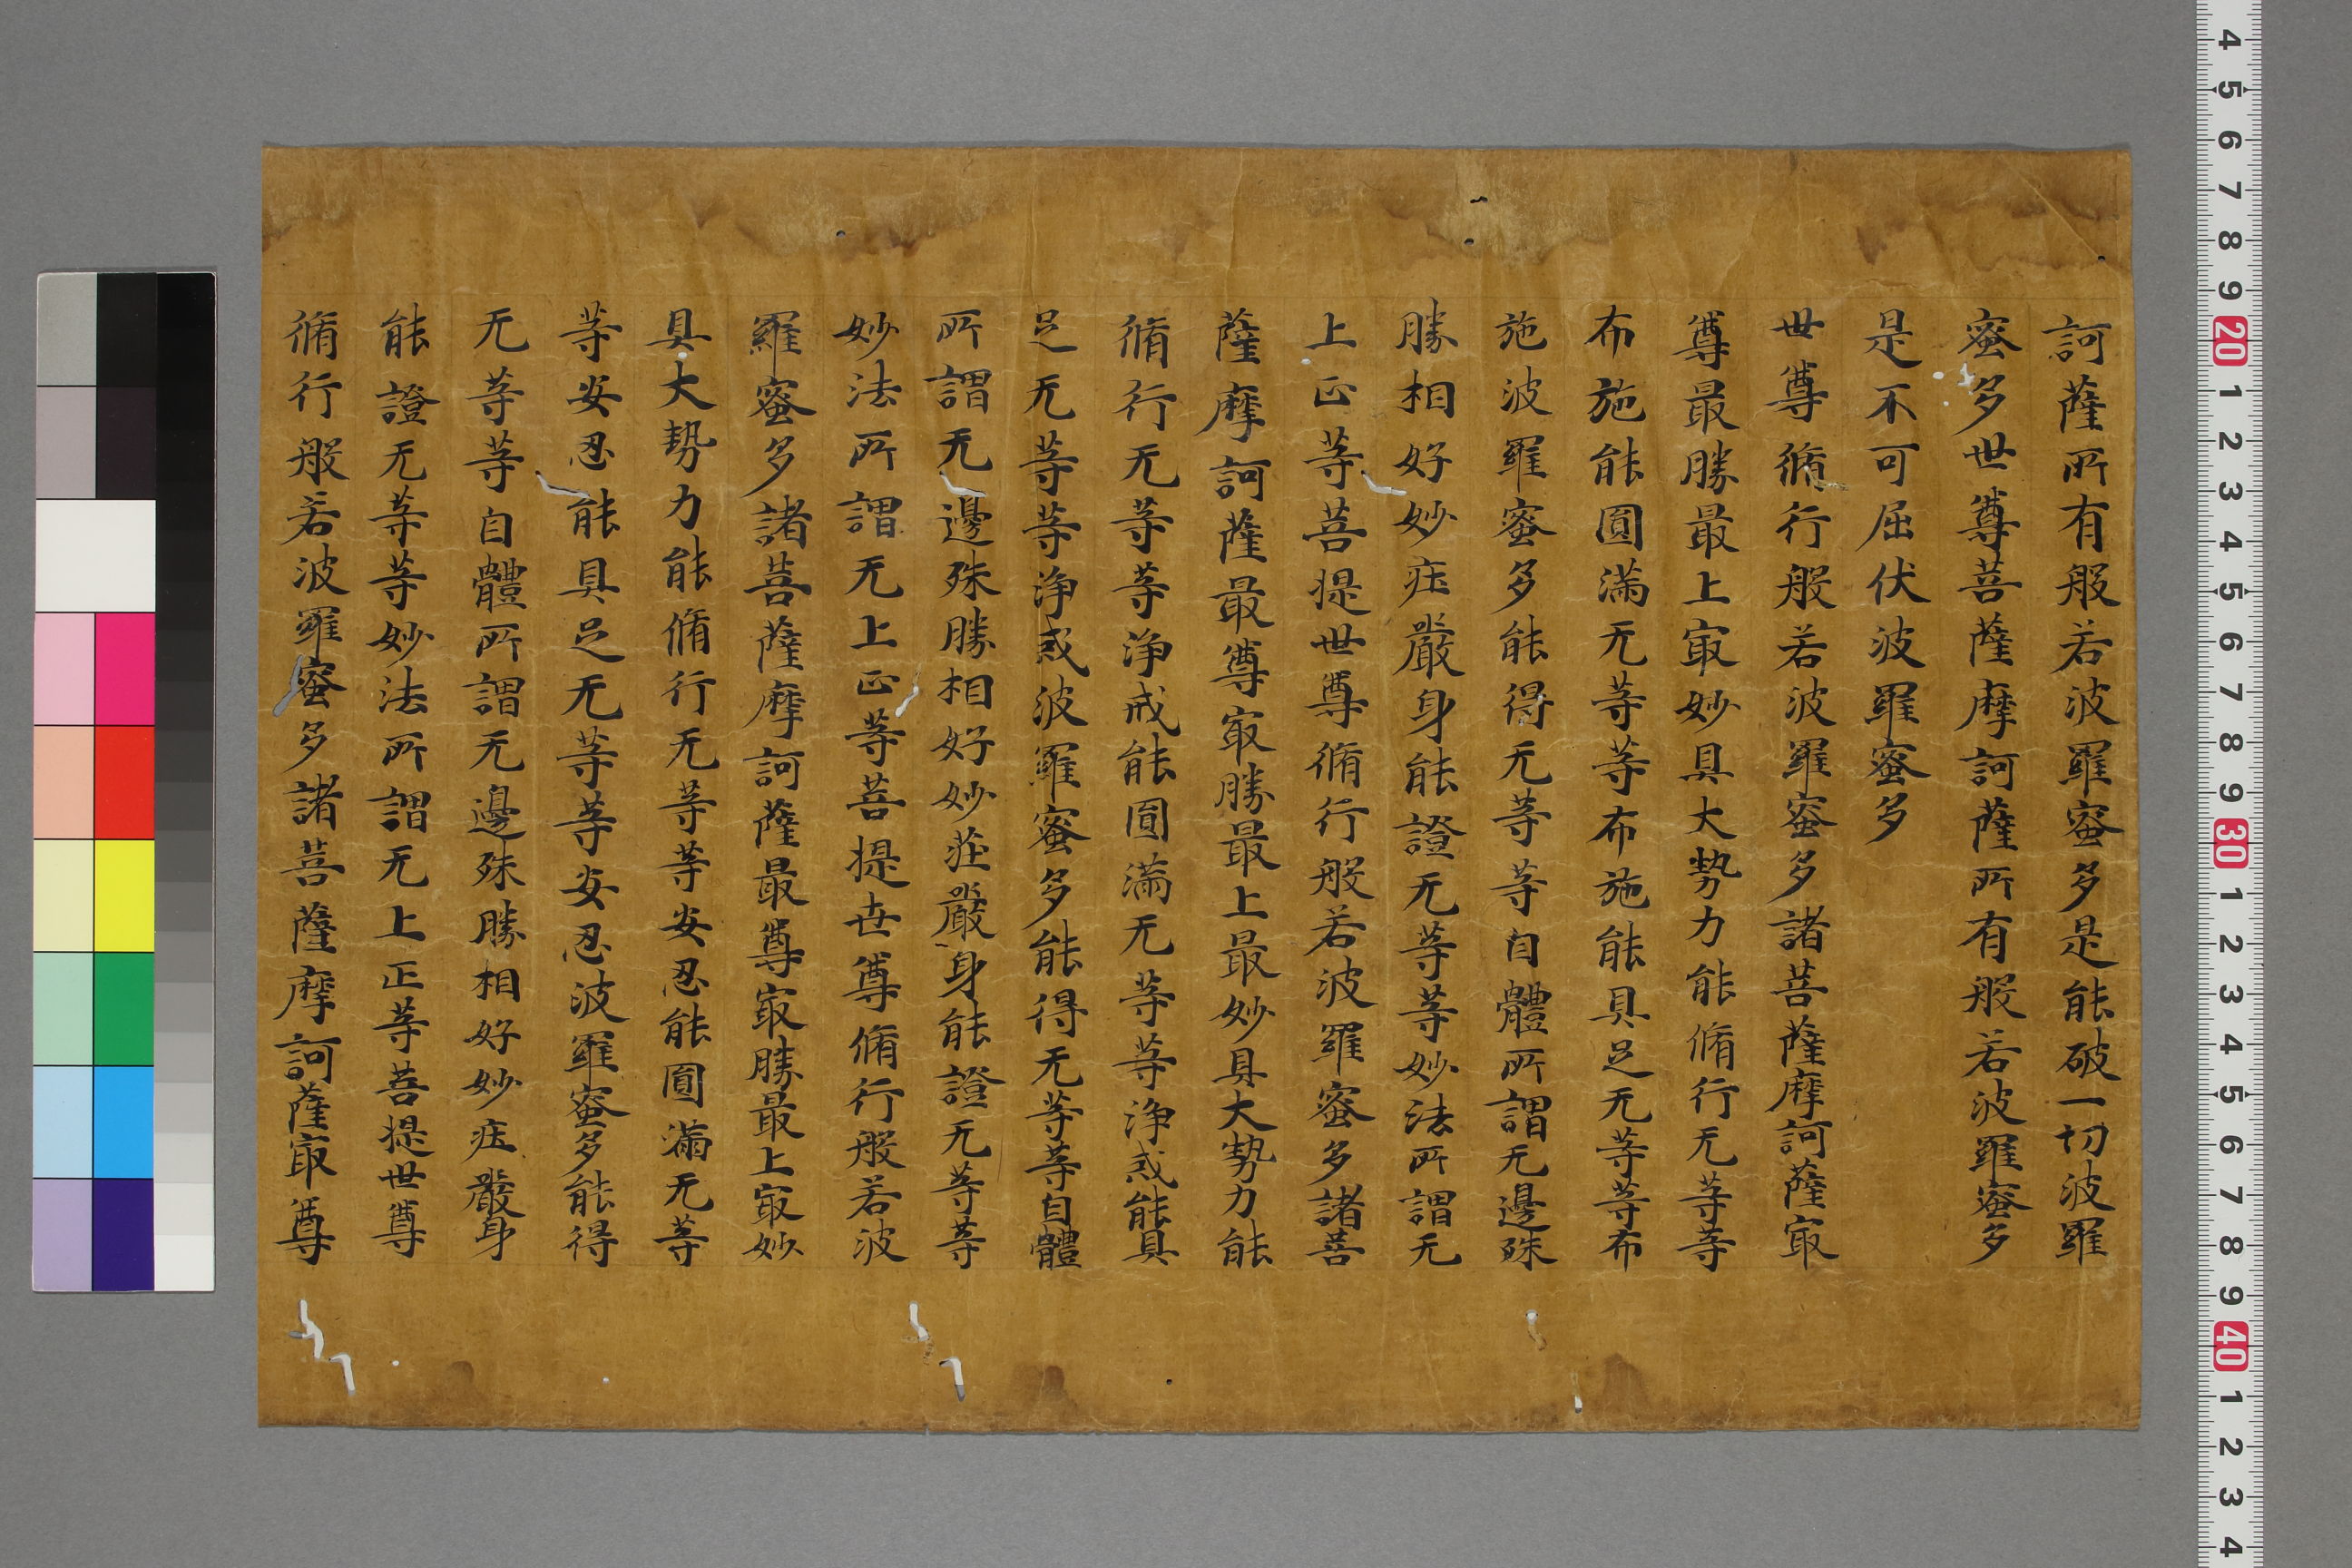 訶薩所有般若波羅蜜多是能破一切波羅
蜜多世尊菩薩摩訶薩所有般若波羅蜜多
是不可屈伏波羅蜜多
世尊脩行般若波羅蜜多諸菩薩摩訶薩㝡
尊最勝最上㝡妙具大勢力能脩行无等等
布施能圓滿无等等布施能具足无等等布
施波羅蜜多能得无等等自體所謂无邊殊
勝相好妙庄嚴身能證无等等妙法所謂无
上正等菩提世尊脩行般若波羅蜜多諸菩
薩摩訶薩最尊㝡勝最上最妙具大勢力能
脩行无等等淨戒能圓滿无等等淨戒能具
足无等等淨戒波羅蜜多能得无等等自體
所謂无邊殊勝相好妙莊嚴身能證无等等
妙法所謂无上正等菩提世尊脩行般若波
羅蜜多諸菩薩摩訶薩最尊㝡勝最上㝡妙
具大勢力能脩行无等等安忍能圓滿无等
等安忍能具足无等等安忍波羅蜜多能得
无等等自體所謂无邊殊勝相好妙庄嚴身
能證无等等妙法所謂无上正等菩提世尊
脩行般若波羅蜜多諸菩薩摩訶薩㝡尊
4 5 6 7 8 9 20 1 2 3 4 5 6 7 8 9 30 1 2 3 4 5 6 7 8 9 40 1 2 3 4